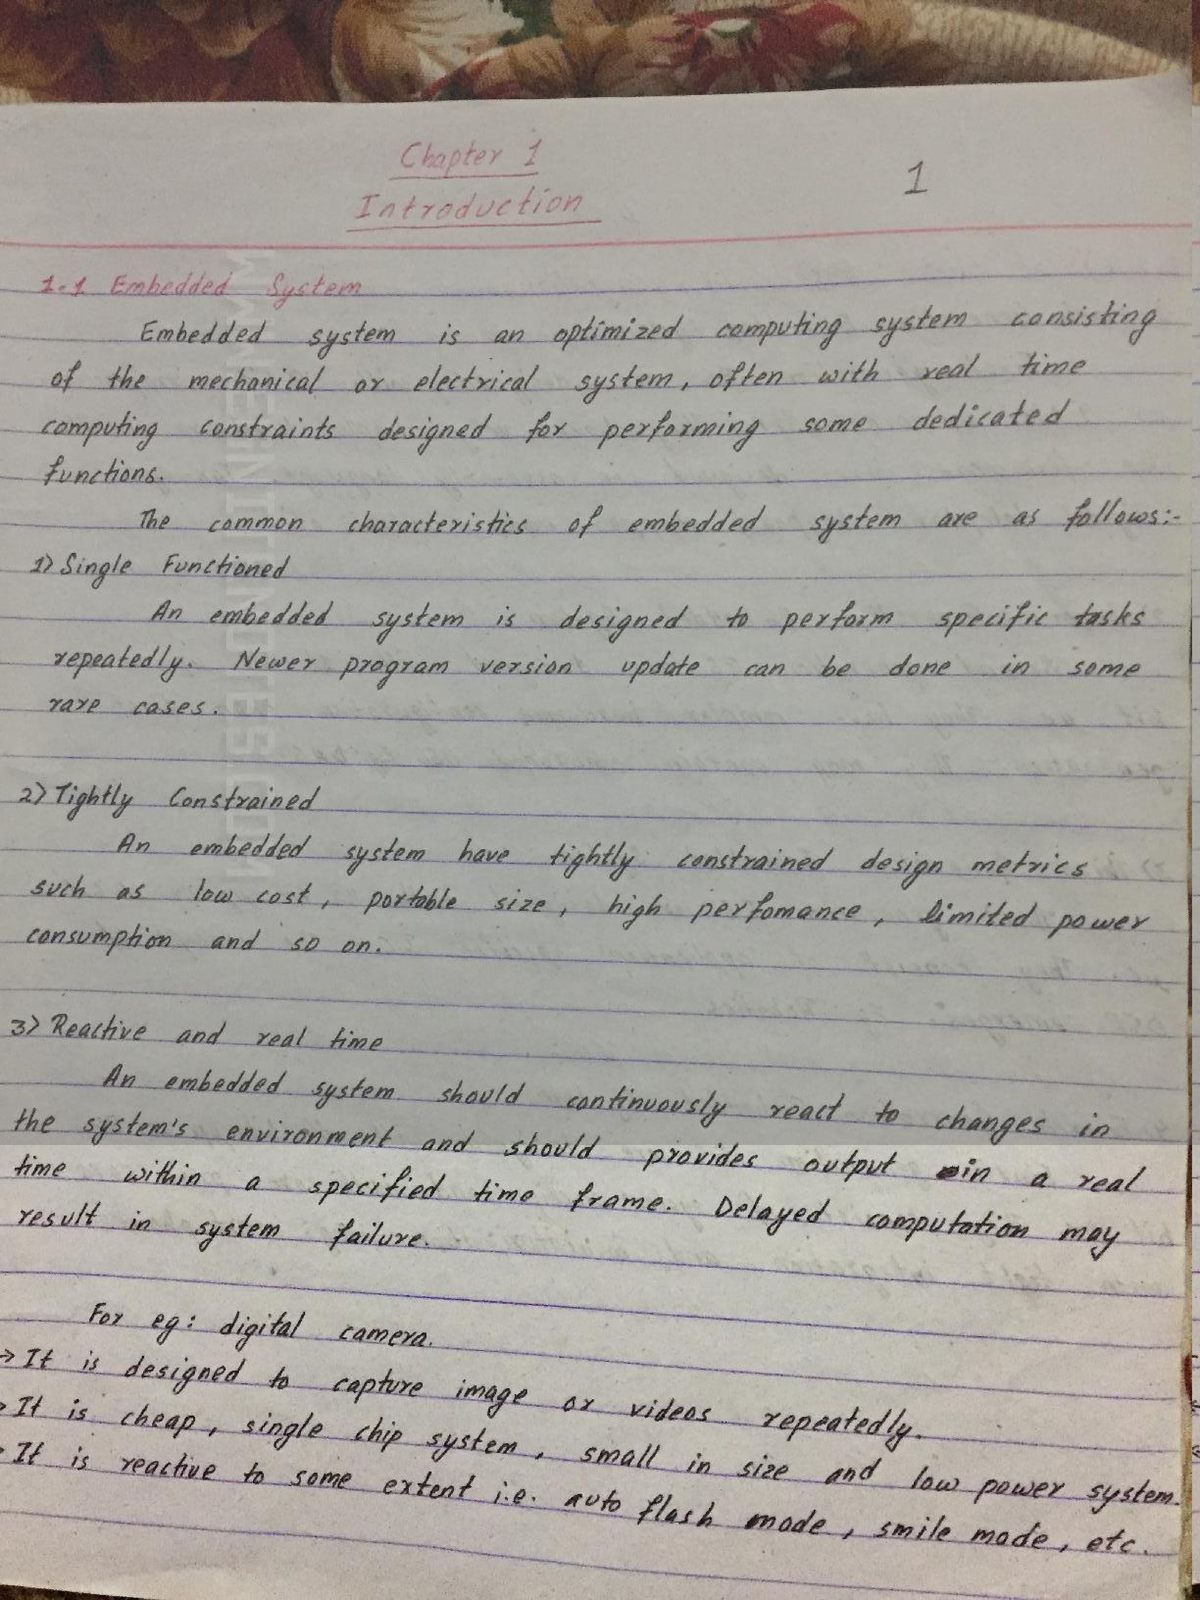 Chapter 1
1
Introduction
1.1 Embedded System
Embedded system is an optimized computing system consisting
of the mechanical or electrical system, often with real time
computing constraints designed for performing some dedicated
functions.
The common characteristics of embedded system are as follows:-
1) Single Functioned
An embedded system is designed to perform specific tasks
repeatedly. Newer program version update can be done in some
rare cases.
2) Tightly Constrained
An embedded system have tightly constrained design metrics
such as low cost, portable size, high perfomance, limited power
consumption and so on.
3) Reactive and real time
An embedded system should continuously react to changes in
the system's environment and should provides output in a real
time within a specified time frame. Delayed computation may
result in system failure.
For eg: digital camera.
→ It is designed to capture image or videos repeatedly.
→ It is cheap, single chip system, small in size and low power system.
→ It is reactive to some extent i.e. auto flash mode, smile mode, etc.